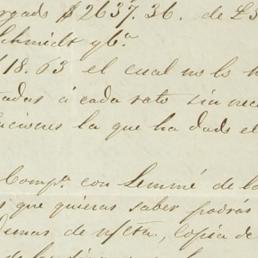 rgado $2637.36. de L3
Schmidt y Ca.
418.63 el cual no lo h
tadas á cada rato sin nec
uciones la que ha dado el
Compa. con Lemmé de la
s que quieras saber podrás
demas de n/cta, copia de